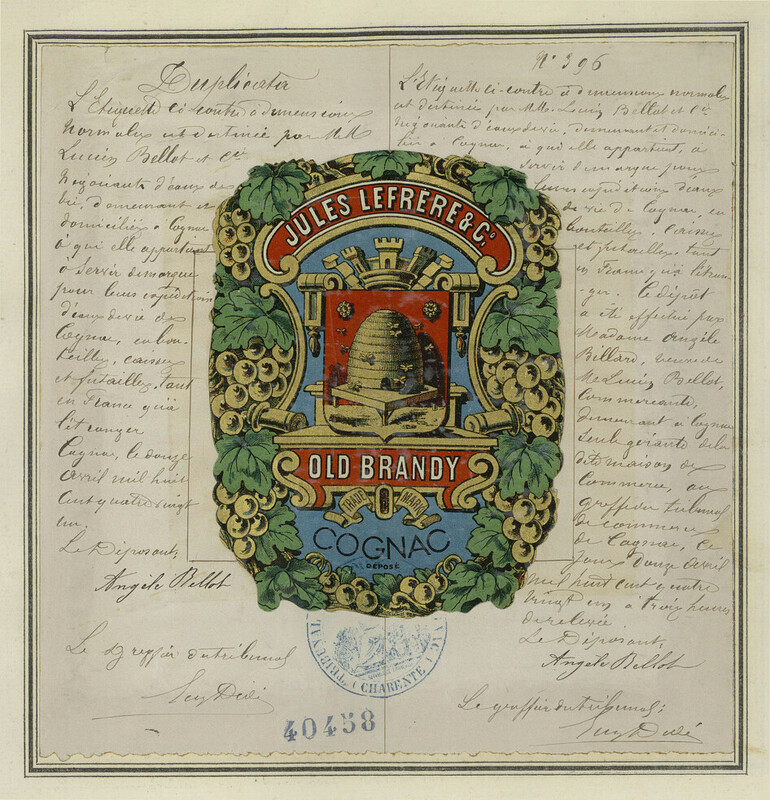 Duplicata
L'Etiquette ci-contre à dimensions
normales est destinée par MM
Lucien Bellot et Cie
Négociants d'eaux de
vie, demeurant et
domiciliés à Cognac
à qui elle appartient
à servir de marque
pour leurs expéditions
d'eaux de vie de
Cognac, en bou-
teilles, caisses
et futailles, tant
en France qu'à
l'étranger
Cognac, le douze
avril mil huit
cent quatre vingt
un.
Le Déposant,
Angèle Bellot
Le Greffier du tribunal
N° 396
L'Etiquette ci-contre à dimensions normales
est destinée par MM. Lucien Bellot et Cie
négociants d'eaux de vie, demeurant et domici-
liés à Cognac, à qui elle appartient, à
servir de marque pour
leurs expéditions d'eaux
de vie de Cognac, en
bouteilles, caisses
et futailles, tant
en France qu'à l'étran-
ger. Le dépôt
a été effectué par
Madame Angèle
Billard, veuve de
Mr Lucien Bellot,
commerçante,
demeurant à Cognac
seule gérante de la
dite maison de
commerce, au
greffe du tribunal
de commerce
de Cognac, ce
jour douze avril
mil huit cent quatre
vingt un à trois heures
de relevée
Le Déposant,
Angèle Bellot
Le greffier du tribunal;
JULES LEFRÈRE & Co.
OLD BRANDY
TRADE MARK
COGNAC
DÉPOSÉ
(CHARENTE)
40458